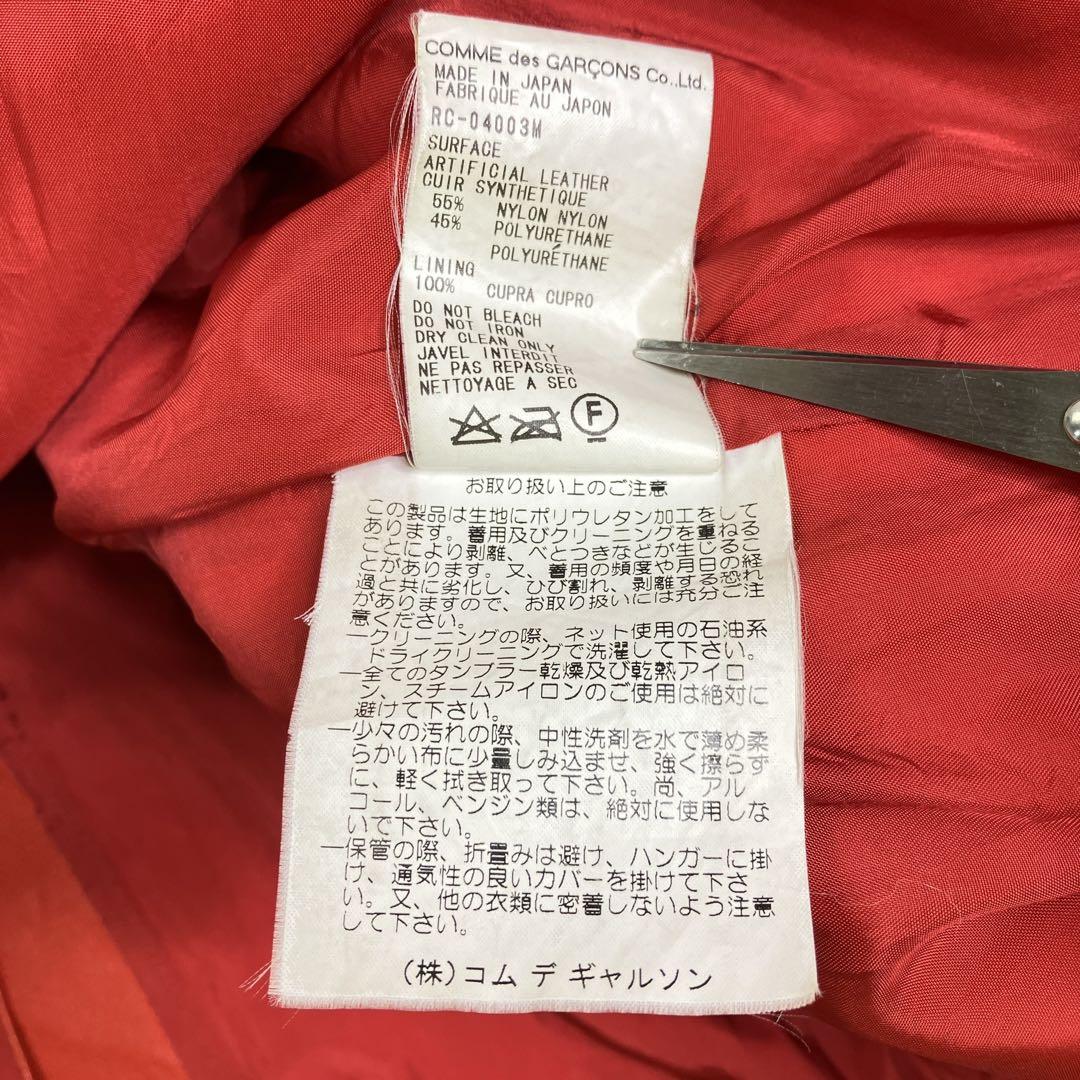 COMME des GARÇONS Co.,Ltd.
MADE IN JAPAN
FABRIQUE AU JAPON
RC-04003M
SURFACE
ARTIFICIAL LEATHER
CUIR SYNTHETIQUE
55% NYLON NYLON
45% POLYURETHANE
POLYURÉTHANE
LINING
100% CUPRA CUPRO
DO NOT BLEACH
DO NOT IRON
DRY CLEAN ONLY
JAVEL INTERDIT
NE PAS REPASSER
NETTOYAGE A SEC
F
お取り扱い上のご注意
この製品は生地にポリウレタン加工をして
あります。着用及びクリーニングを重ねる
ことにより剥離、べとつきなどが生じるこ
とがあります。又、着用の頻度や月日の経
過と共に劣化し、ひび割れ、剥離する恐れ
がありますので、お取り扱いには充分ご注
意ください。
一クリーニングの際、ネット使用の石油系
ドライクリーニングで洗濯して下さい。
一全てのタンブラー乾燥及び乾熱アイロ
ン、スチームアイロンのご使用は絶対に
避けて下さい。
一少々の汚れの際、中性洗剤を水で薄め柔
らかい布に少量しみ込ませ、強く擦らず
に、軽く拭き取って下さい。尚、アル
コール、ベンジン類は、絶対に使用しな
いで下さい。
一保管の際、折畳みは避け、ハンガーに掛
け、通気性の良いカバーを掛けて下さ
い。又、他の衣類に密着しないよう注意
して下さい。
(株)コム デ ギャルソン